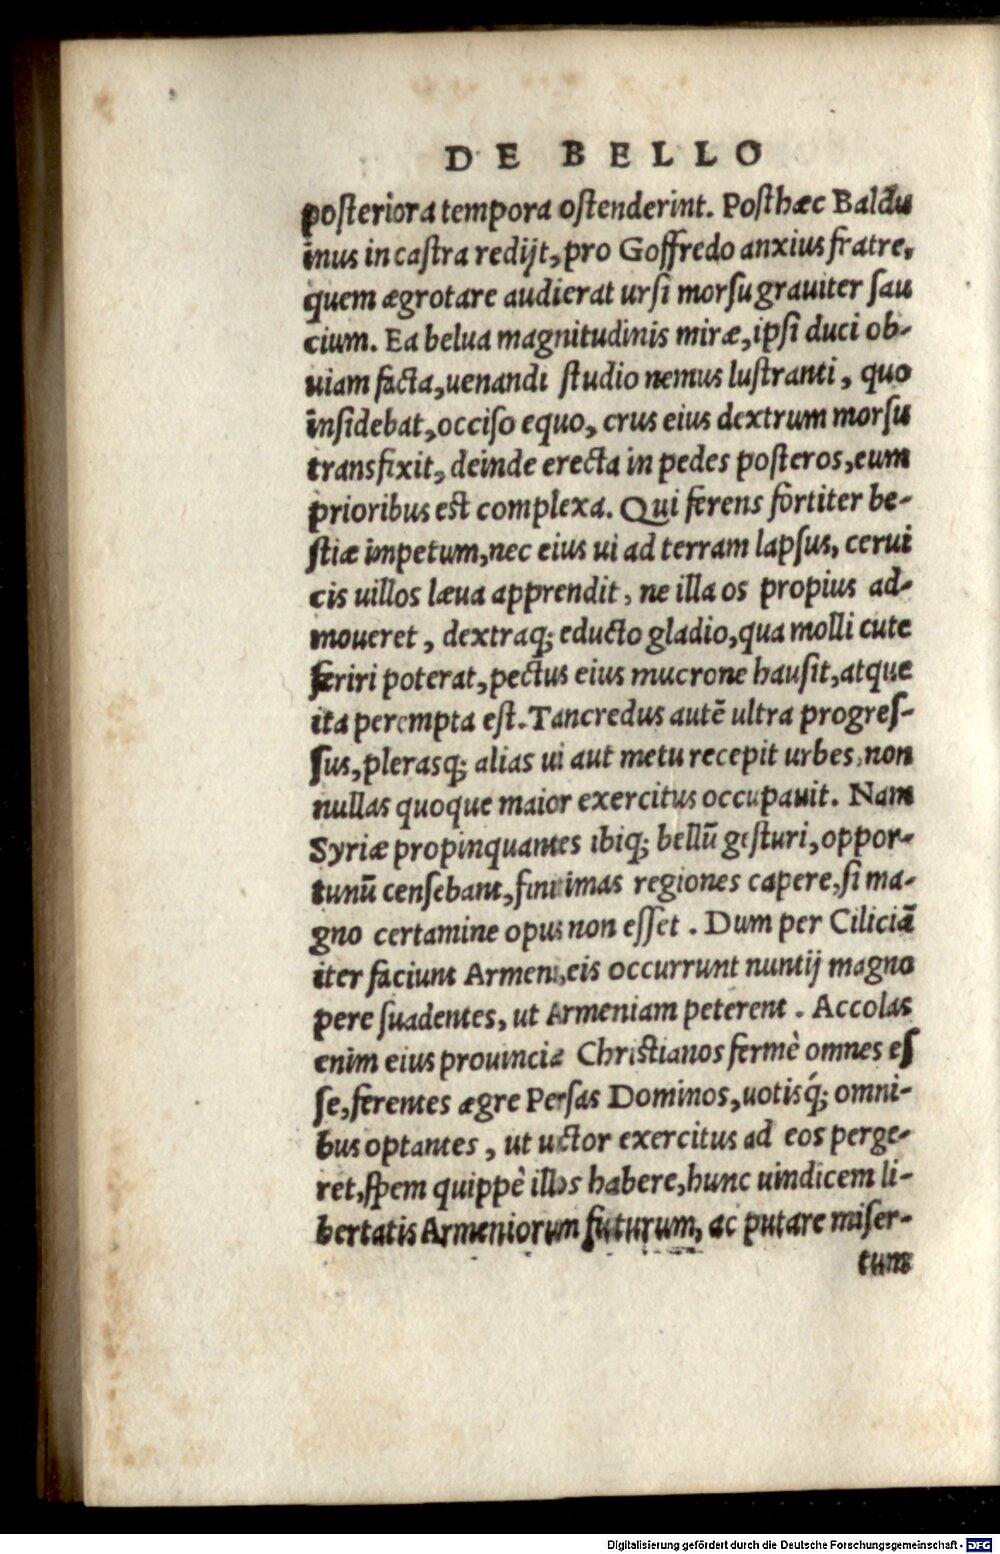 DE BELLO
posteriora tempora ostenderint. Posthæc Baldu
inus in castra redijt, pro Goffredo anxius fratre,
quem ægrotare audierat ursi morsu grauiter sau
cium. Ea belua magnitudinis miræ, ipsi duci ob-
uiam facta, uenandi studio nemus lustranti, quo
insidebat, occiso equo, crus eius dextrum morsu
transfixit, deinde erecta in pedes posteros, eum
prioribus est complexa. Qui ferens fortiter be-
stiæ impetum, nec eius ui ad terram lapsus, cerui
cis uillos læua apprendit, ne illa os propius ad-
moueret, dextraq; educto gladio, qua molli cute
feriri poterat, pectus eius mucrone hausit, atque
ita perempta est. Tancredus autē ultra progres-
sus, plerasq; alias ui aut metu recepit urbes, non
nullas quoque maior exercitus occupauit. Nam
Syriæ propinquantes ibiq; bellū gesturi, oppor-
tunū censebant, finitimas regiones capere, si ma-
gno certamine opus non esset. Dum per Ciliciā
iter faciunt Armeni, eis occurrunt nuntij magno
pere suadentes, ut Armeniam peterent. Accolas
enim eius prouinciæ Christianos fermè omnes es
se, ferentes ægre Persas Dominos, uotisq́; omni-
bus optantes, ut uictor exercitus ad eos perge-
ret, spem quippè illos habere, hunc uindicem li-
bertatis Armeniorum futurum, ac putare miser-
tum
Digitalisierung gefördert durch die Deutsche Forschungsgemeinschaft - DFG